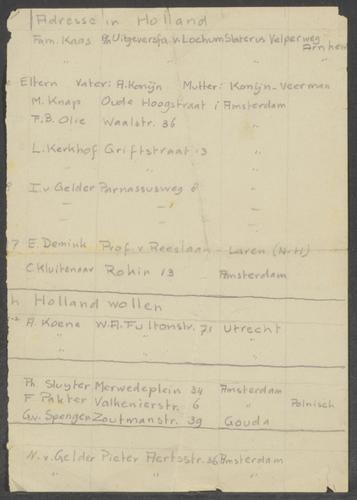 Adresse in Holland
Fam. Kaas Uitgeversfa v. Lochum Slaterus Velperweg
Arnhem
Eltern Vater: A. Konijn Mutter: Konijn-Veerman
M. Knap Oude Hoogstraat Amsterdam
F.B. Olie Waalstr. 36 "
L. Kerkhof Griftstraat 13 "
I. v Gelder Parnassusweg 8 "
" " "
" " "
7 E. Demink Prof. v. Reeslaan - Laren (N-H)
C. Kluitenaar Rokin 13 Amsterdam
Holland wollen
A. Koene W.A. Fultonstr. 71 Utrecht
" " "
Ph. Sluyter Merwedeplein 34 Amsterdam
F Pakter Valkenierstr. 6 " Polnisch
G.v. Spengen Zoutmanstr. 39 Gouda
N. v. Gelder Pieter Aertsstr. 36 Amsterdam
" " "